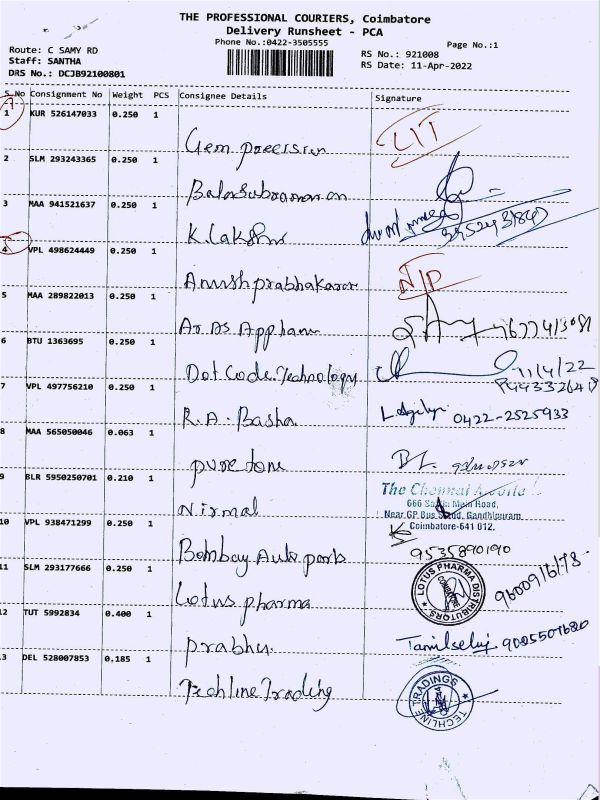 THE PROFESSIONAL COURIERS, Coimbatore
Delivery Runsheet - PCA
Phone No.:0422-3505555
Page No.:1
Route: C SAMY RD
Staff: SANTHA
DRS No.: DCJB92100801
RS No.: 921008
RS Date: 11-Apr-2022
S No Consignment No Weight PCS Consignee Details Signature
1 KUR 526147033 0.250 1
Gem precision
LIT
2 SLM 293243365 0.250 1
Balasubramanian
3 MAA 941521637 0.250 1
K. Lakshmi
4 VPL 498624449 0.250 1
Anush prabhakaran
N/D
5 MAA 289822013 0.250 1
Ar As Appham
6 BTU 1363695 0.250 1
Dot Code Technology
11/4/22
7 VPL 497756210 0.250 1
R.A. Basha
0422-2525933
8 MAA 565050046 0.063 1
pure tone
9 BLR 5950250701 0.210 1
Nirmal
The Chennai
666 Main Road,
Near GP Bus Stand, Gandhipuram
Coimbatore-641 012.
10 VPL 938471299 0.250 1
Bombay Auto parts
9535890190
11 SLM 293177666 0.250 1
Lotus pharma
LOTUS PHARMA DISTRIBUTORS
COIMBATORE
9600916178
12 TUT 5992834 0.400 1
prabhu
Tamilselvi
13 DEL 528007853 0.185 1
Techline Trading
TECHLINE TRADINGS